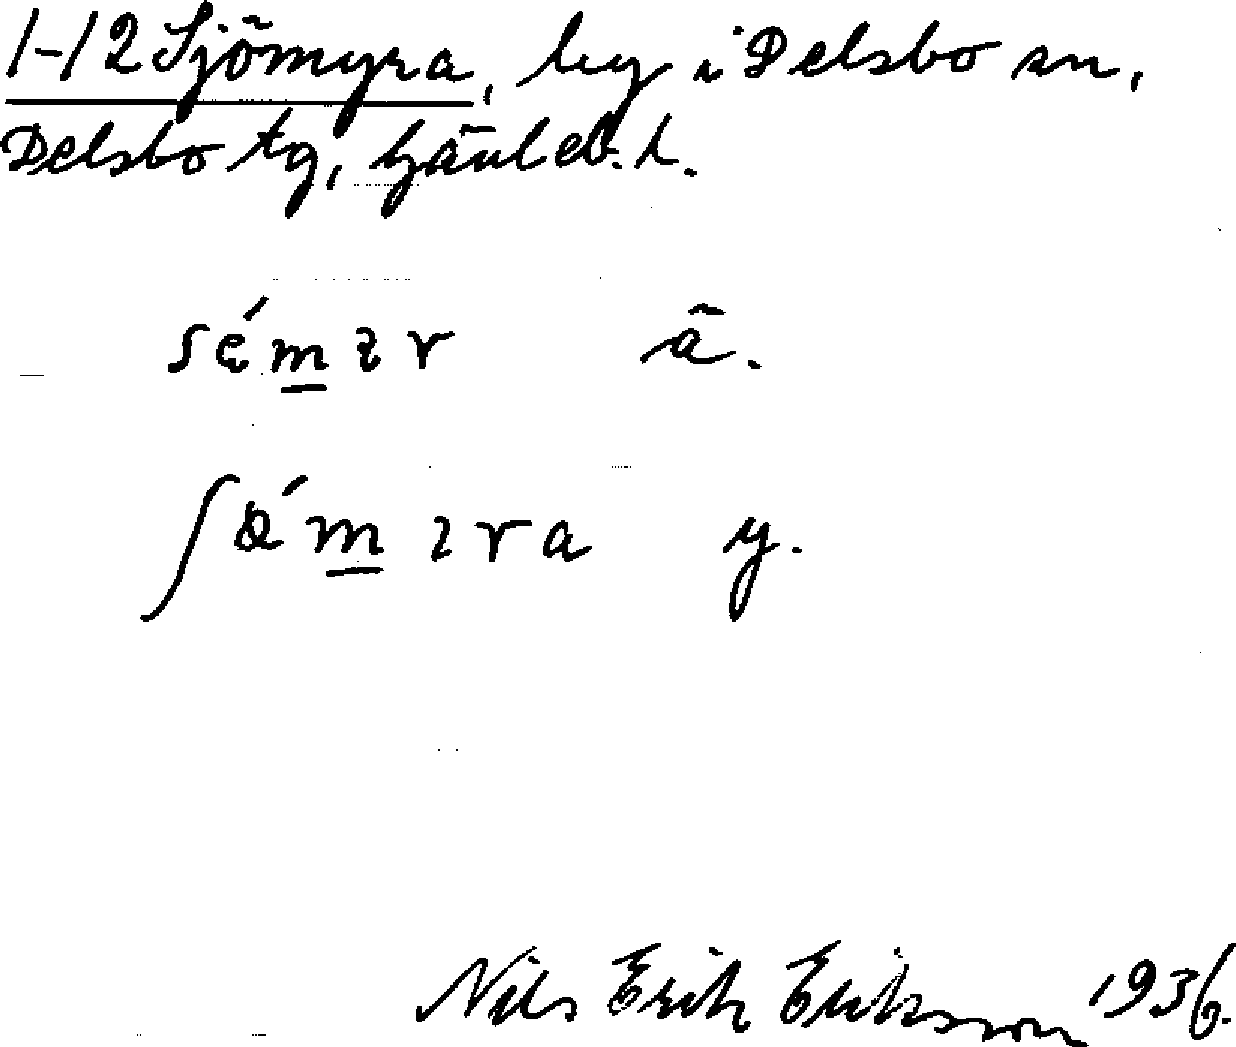 1-12 Sjömyra, by i Delsbo sn,
Delsbo tg, Gävleb. l.
ä.
y.
Nils Erik Eriksson 1936.